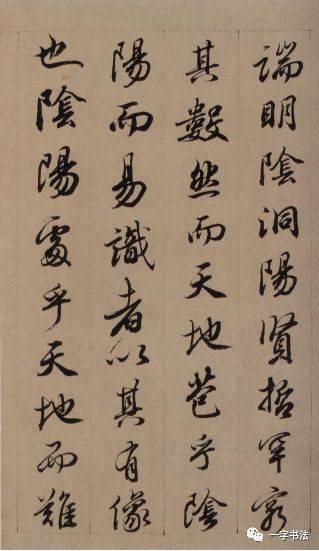 端明陰洞陽賢哲罕窮
其數然而天地苞乎陰
陽而易識者以其有像
也陰陽處乎天地而難
一字书法